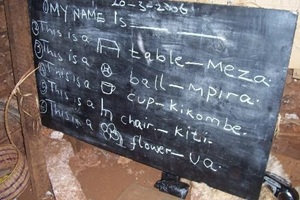 20-3-2006
① MY NAME is
② This is a table - Meza.
③ This is a ball - Mpira.
④ This is a cup - kikombe.
⑤ This is a chair - kiti.
⑥ This is a flower - Ua.